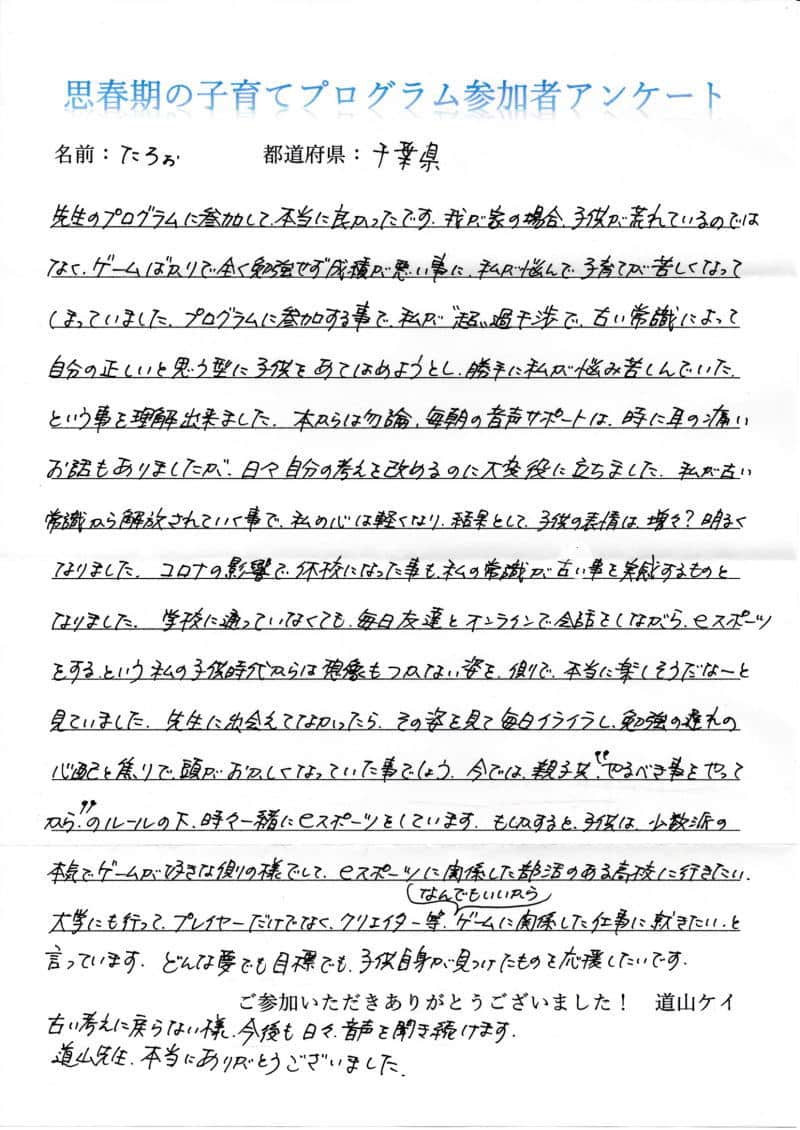 思春期の子育てプログラム参加者アンケート
名前：たろお 都道府県：千葉県
先生のプログラムに参加して、本当に良かったです。我が家の場合、子供が荒れているのでは
なく、ゲームばかりで全く勉強せず成績が悪い事に、私が悩んで、子育てが苦しくなって
しまっていました。プログラムに参加する事で、私が〝超〟過干渉で、古い常識によって
自分の正しいと思う型に子供をあてはめようとし、勝手に私が悩み苦しんでいた、
という事を理解出来ました。本からは勿論、毎朝の音声サポートは、時に耳の痛い
お話もありましたが、日々自分の考えを改めるのに大変役に立ちました。私が古い
常識から解放されていく事で、私の心は軽くなり、結果として、子供の表情は、増々?明るく
なりました。コロナの影響で、休校になった事も、私の常識が古い事を実感するものと
なりました。学校に通っていなくても、毎日友達とオンラインで会話をしながら、eスポーツ
をする、という私の子供時代からは想像もつかない姿を、側で、本当に楽しそうだなーと
見ていました。先生に出会えてなかったら、その姿を見て毎日イライラし、勉強の遅れの
心配と焦りで、頭がおかしくなっていた事でしょう。今では、親子共、〝やるべき事をやって
から〟のルールの下、時々一緒にeスポーツをしています。もしかすると、子供は、少数派の
本気でゲームが好きな側の様でして、eスポーツに関係した部活のある高校に行きたい、
(なんでもいいから)
大学にも行って、プレイヤーだけでなく、クリエイター等、ゲームに関係した仕事に就きたい、と
言っています。どんな夢でも目標でも、子供自身が見つけたものを応援したいです。
ご参加いただきありがとうございました！ 道山ケイ
古い考えに戻らない様、今後も日々、音声を聞き続けます。
道山先生、本当にありがとうございました。